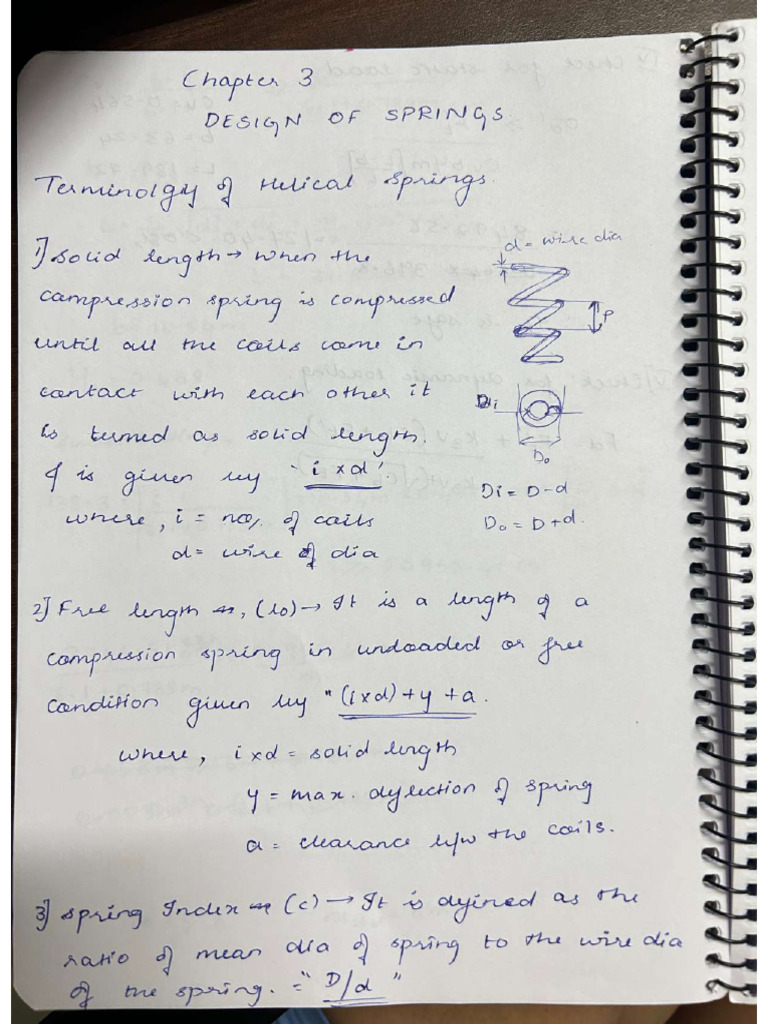 Chapter 3
DESIGN OF SPRINGS
Terminolgiy of Helical Springs.
1] Solid length → When the
compression spring is compressed
until all the coils come in
contact with each other it
is termed as solid length.
& is given by "i × d".
where, i = no. of coils
d = wire of dia
d = wire dia
P
Di
Do
Di = D-d
Do = D+d.
2] Free length, (lo) → It is a length of a
compression spring in undoaded or free
condition given by "(i×d) + y + a.
where, i×d = solid length
y = max. deflection of spring
a = clearance b/w the coils.
3] Spring Index (C) → It is defined as the
ratio of mean dia of spring to the wire dia
of the spring. = "D/d"